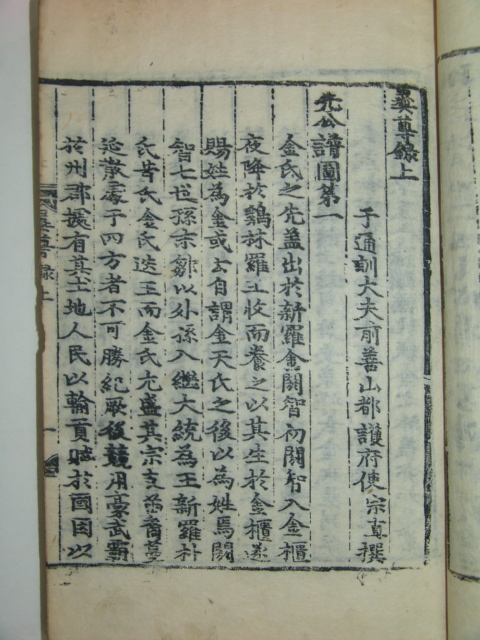 彝尊錄上
子通訓大夫前善山都護府使宗直撰
先公譜圖第一
金氏之先盖出於新羅金閼智初閼智入金櫃
夜降於鷄林羅王收而養之以其生於金櫃遂
賜姓為金或云自謂金天氏之後以為姓焉閼
智七世孫末鄒以外孫入繼大統為王新羅朴
氏昔氏金氏迭王而金氏尤盛其宗支裔蔓
延散處于四方者不可勝紀厥後競用豪武霸
於州郡據有其土地人民以輸貢賦於國因以
彝尊錄上 一